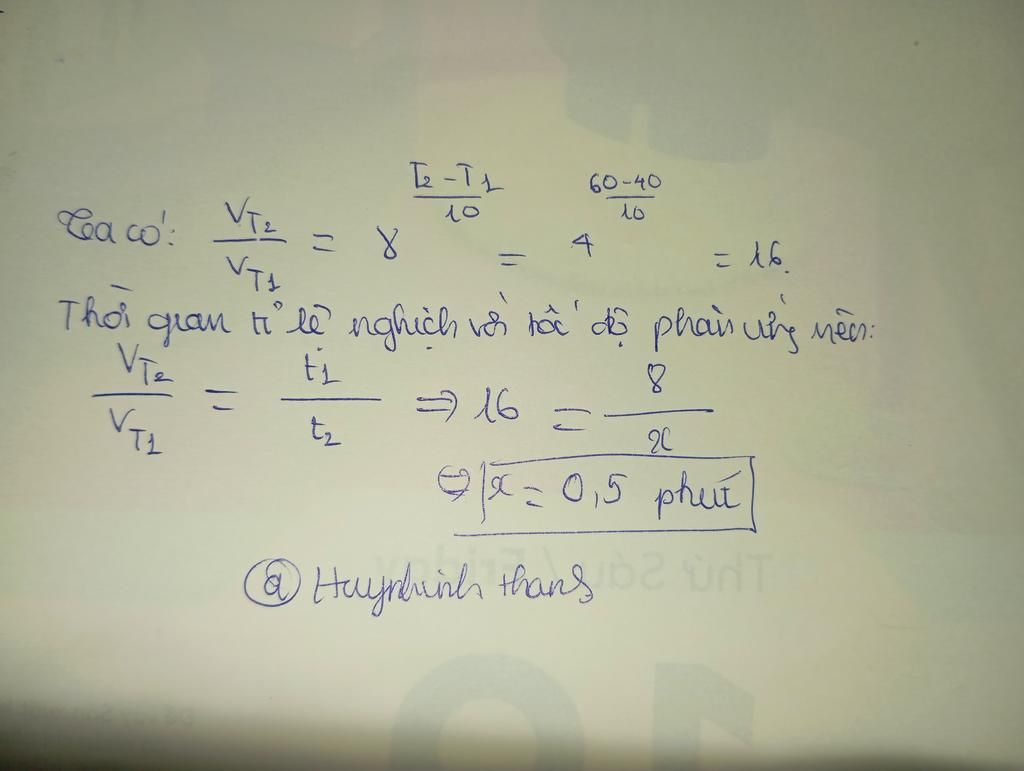 Ta có: V_T₂ / V_T₁ = γ^((T₂ - T₁)/10) = 4^((60-40)/10) = 16.
Thời gian tỉ lệ nghịch với tốc độ phản ứng nên:
V_T₂ / V_T₁ = t₁ / t₂ ⇒ 16 = 8 / x
⇔ x = 0,5 phút
@ Huynhvinh thang
Thứ Sáu / Friday
10